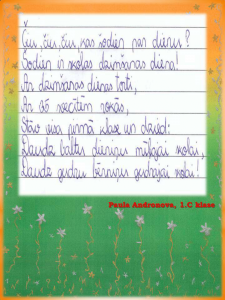 Čiu, čiu, čiu, kas šodien par dienu?
Šodien ir skolas dzimšanas diena!
Ar dzimšanas dienas torti,
Ar 25 svecītēm rokās,
Stāv visa pirmā klase un dzied:
Daudz baltu dieniņu mīļajai skolai,
Daudz gudru bērniņu gudrajai skolai!
Paula Andronova, 1.C klase